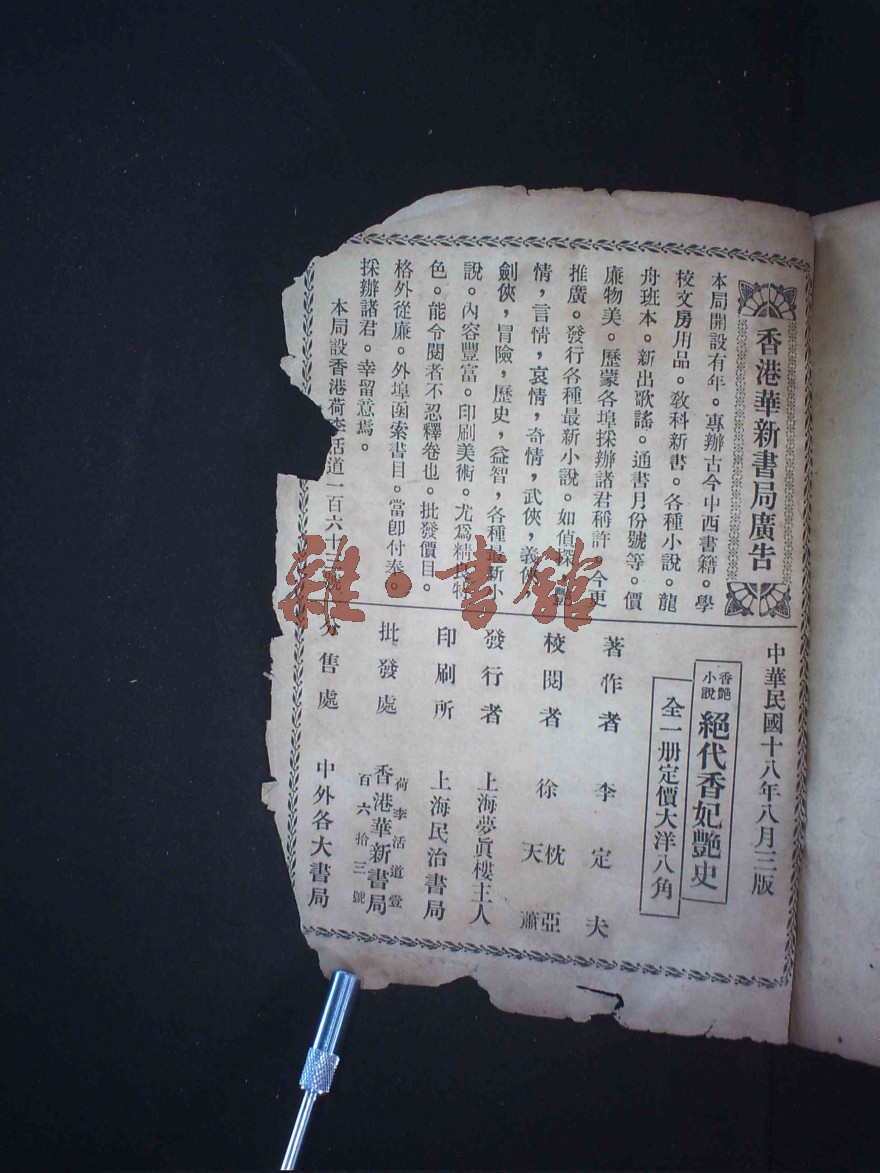 香港華新書局廣告
本局開設有年。專辦古今中西書籍。學
校文房用品。教科新書。各種小說。龍
舟班本。新出歌謠。通書月份號等。價
廉物美。歷蒙各埠採辦諸君稱許。今更
推廣。發行各種最新小說。如偵探，艷
情，言情，哀情，奇情，武俠，義俠，
劍俠，冒險，歷史，益智，各種最新小
說。內容豐富。印刷美術。尤爲精良特
色。能令閱者不忍釋卷也。批發價目。
格外從廉。外埠函索書目。當卽付奉。
採辦諸君。幸留意焉。
本局設香港荷李活道一百六十三號
中華民國十八年八月三版
香艷小說
絕代香妃艷史
全一册定價大洋八角
著作者 李定夫
校閱者 徐枕亞 天蕭
發行者 上海夢眞樓主人
印刷所 上海民治書局
批發處 香港華新書局
荷李活道壹百六拾三號
分售處 中外各大書局
雜·書館